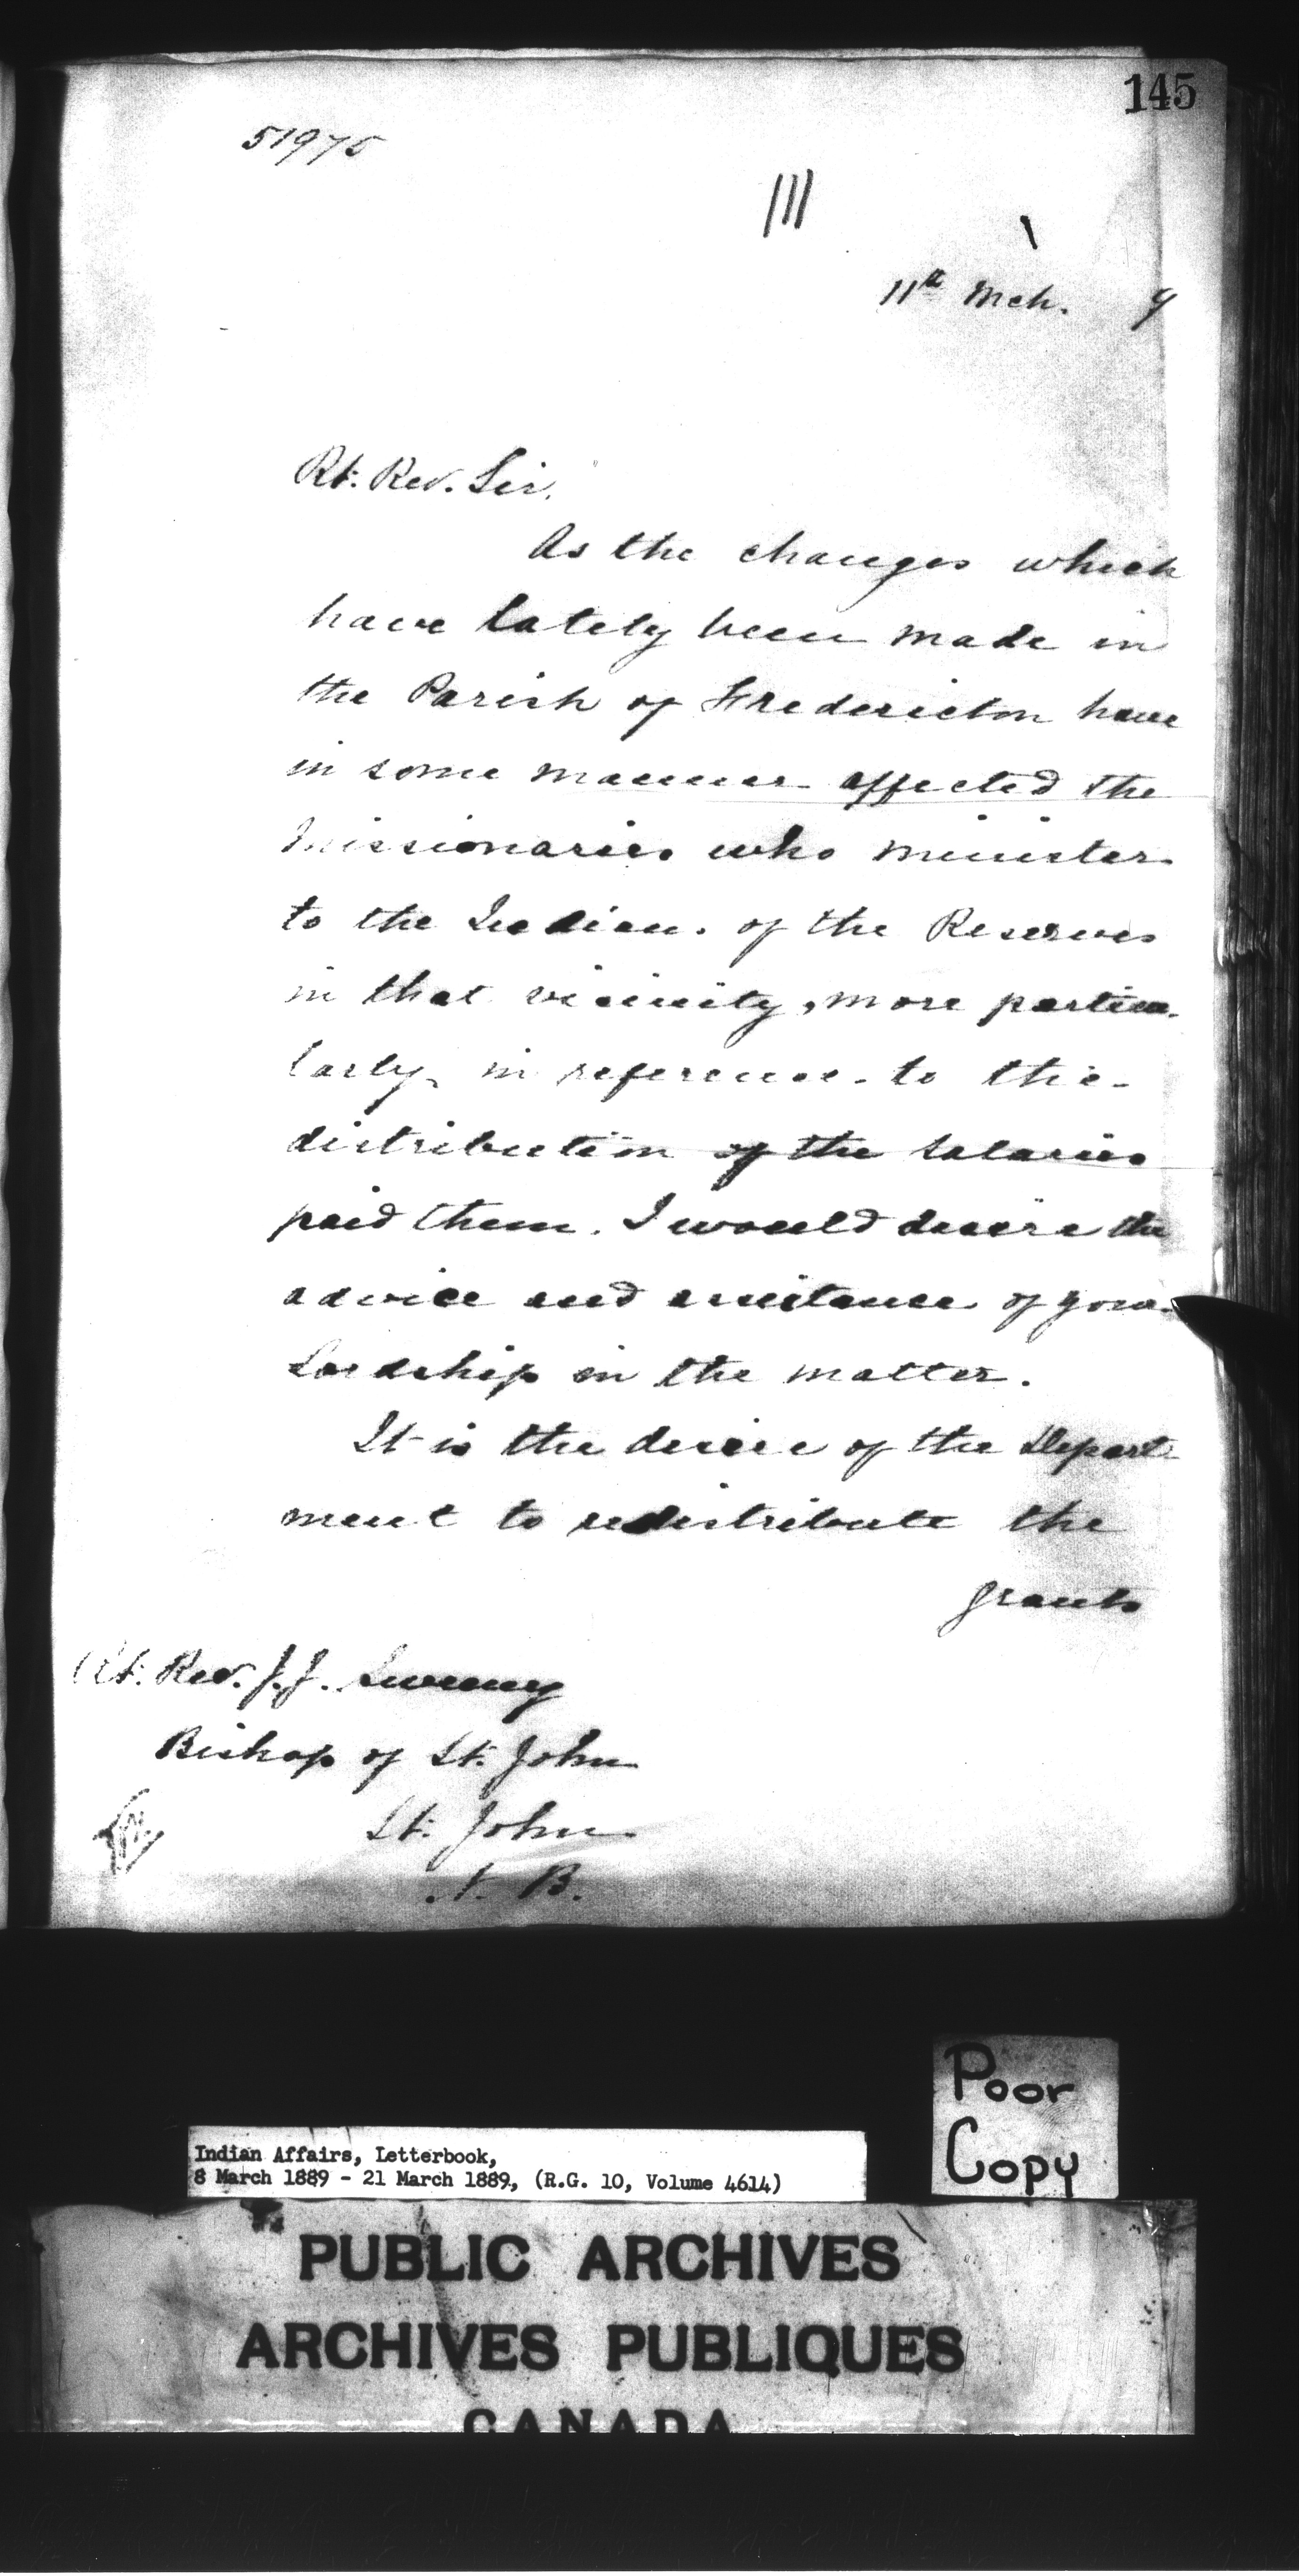 145
51975
11th Mch. 9
Rt. Rev. Sir,
As the changes which
have lately been made in
the Parish of Fredericton have
in some manner affected the
Missionaries who minister
to the Indians of the Reserves
in that vicinity, more particu-
larly, in reference to the
distribution of the Salaries
paid them. I would desire the
advice and assistance of your
Lordship in the matter.
It is the desire of the Depart-
ment to redistribute the
grants
Rt. Rev. J. J. Sweeny
Bishop of St. John
St. John
N. B.
Poor
Copy
Indian Affairs, Letterbook,
8 March 1889 - 21 March 1889, (R.G. 10, Volume 4614)
PUBLIC ARCHIVES
ARCHIVES PUBLIQUES
CANADA